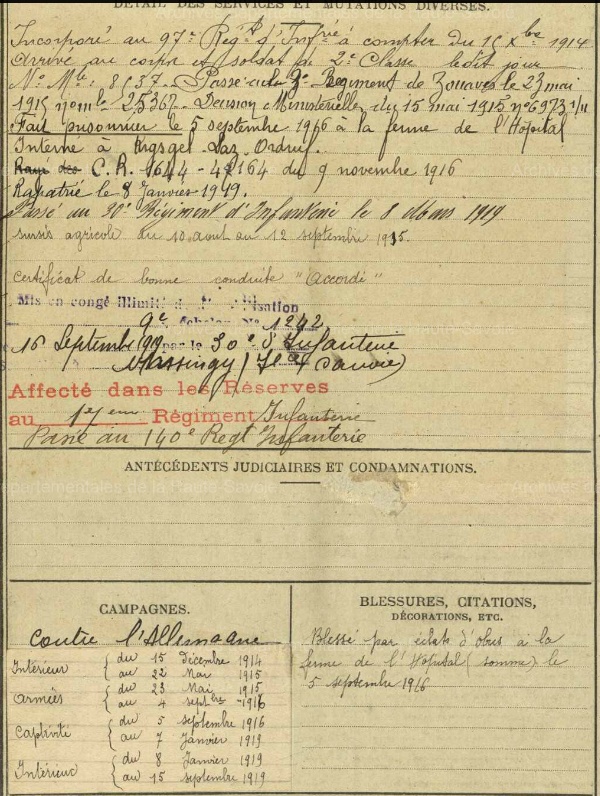 DÉTAIL DES SERVICES ET MUTATIONS DIVERSES.
Incorporé au 97e Regt d'Infrie à compter du 15 Xbre 1914
Arrivé au corps et soldat de 2e Classe ledit jour
No Mle: 8537. Passé au 3e Regiment de Zouaves le 23 mai
1915 no mle 25367. Décision Ministérielle du 15 mai 1915 no 6973 1/11
Fait prisonnier le 5 septembre 1916 à la ferme de l'Hôpital
Interné à
Rayé des C.R. 1644 - 164 du 9 novembre 1916
Rapatrié le 8 Janvier 1919.
Passé au 30e Régiment d'Infanterie le 8 Mars 1919
sursis agricole du 10 aout au 12 septembre 1915.
certificat de bonne conduite "Accordé"
Mis en congé illimité de démobilisation
9e échelon No 1242
16 Septembre 1919 par le 30e d'Infanterie
Massingy (Hte Savoie)
Affecté dans les Réserves
au Régiment Infanterie
Passé au 140e Regt Infanterie
ANTÉCÉDENTS JUDICIAIRES ET CONDAMNATIONS.
CAMPAGNES.
contre l'Allemagne
Intérieur { du 15 Décembre 1914
au 22 Mai 1915
Armées { du 23 Mai 1915
au 4 septbre 1916
Captivité { du 5 septembre 1916
au 7 Janvier 1919
Intérieur { du 8 Janvier 1919
au 15 septembre 1919
BLESSURES, CITATIONS,
DÉCORATIONS, ETC.
Blessé par éclats d'obus à la
ferme de l'Hopital (somme) le
5 septembre 1916